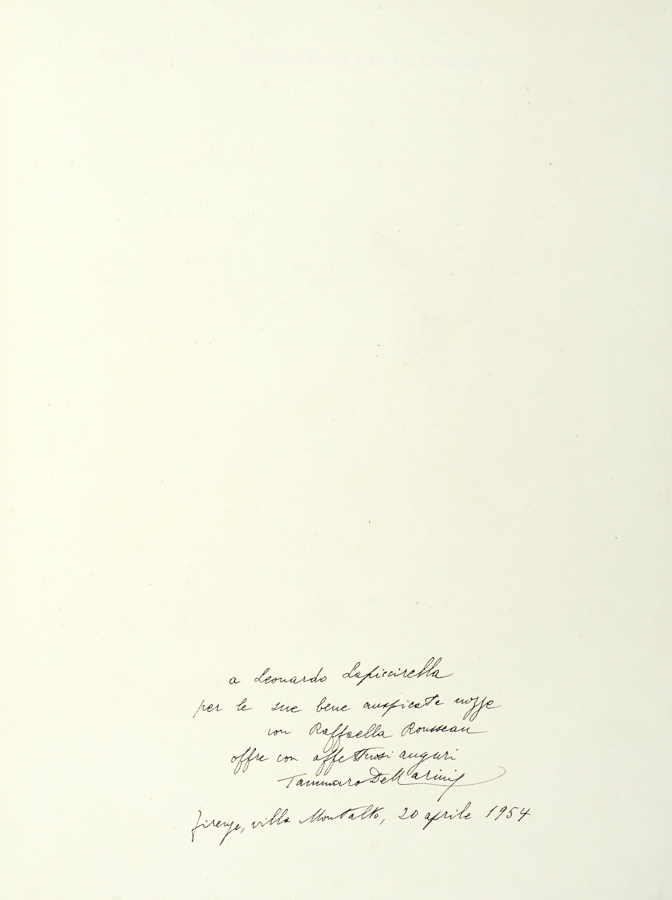 a Leonardo Lapiccirella
per le sue bene auspicate nozze
con Raffaella Rousseau
offre con affettuosi auguri
Tammaro De Marinis
Firenze, villa Montalto, 20 aprile 1954